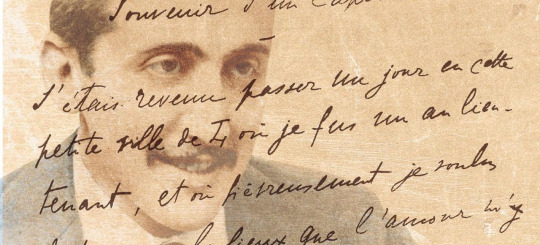 Souvenir d'un Cap
J'étais revenu passer un jour en cette
petite ville de L, où je fus un an lieu-
tenant, et où fiévreusement je voulus
lieux que l'amour m'y